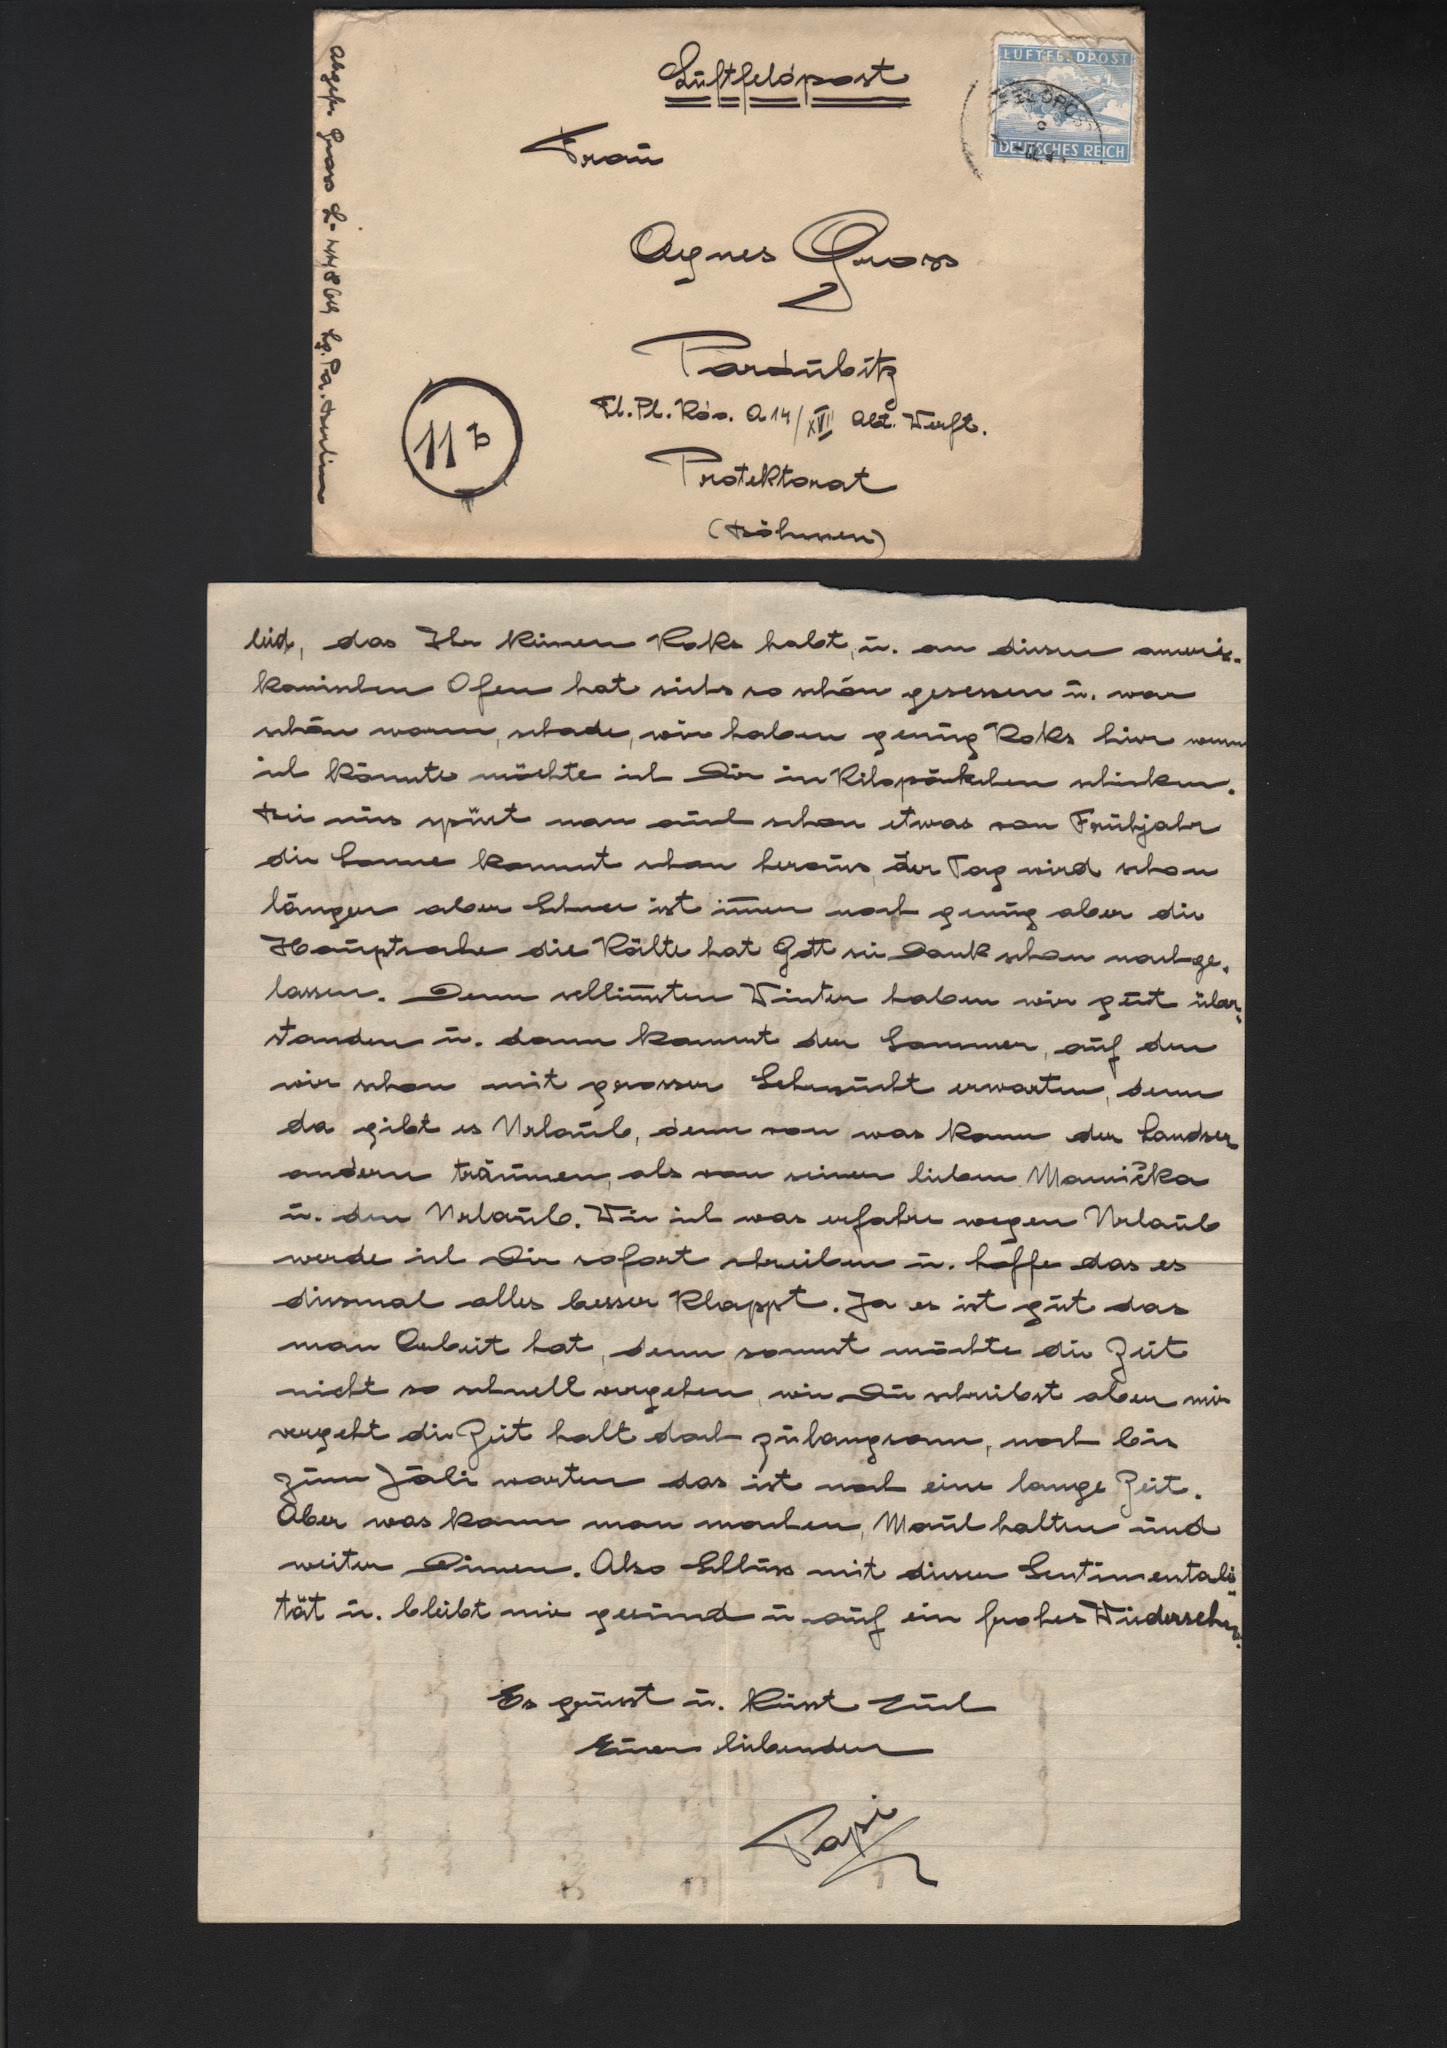 Luftfeldpost
LUFTFELDPOST
DEUTSCHES REICH
Frau
Agnes Gross
Pardubitz
Fl. Pl. Kdo. A 14/XVII Abt. Werft.
Protektorat
(Böhmen)
11 b
Gross Lg. Pa. Berlin
leid, das Ihr keinen Koks habt, u. an diesem ameri-
kanischen Ofen hat sichs so schön gesessen u. war
schön warm, schade, wir haben genug Koks hier wenn
ich könnte möchte ich Dir in Kilopäckchen schicken.
Bei uns spürt man auch schon etwas von Frühjahr
die Sonne kommt schon heraus, der Tag wird schon
länger aber Schnee ist imer noch genug aber die
Hauptsache die Kälte hat Gott sei Dank schon nachge-
lassen. Denn schlimsten Winter haben wir gut über-
standen u. dann kommt der Sommer, auf den
wir schon mit grosser Sehnsucht erwarten, denn
da gibt es Urlaub, denn von was kann der Landser
andern träumen, als von seiner lieben Mamička
u. den Urlaub. Wie ich was erfahre wegen Urlaub
werde ich Dir sofort schreiben u. hoffe das es
diesmal alles besser klappt. Ja es ist gut das
man Arbeit hat, denn sonnst möchte die Zeit
nicht so schnell vergehen, wie Du schreibst aber mir
vergeht die Zeit halt doch zulangsam, noch bis
zum Juli warten das ist noch eine lange Zeit.
Aber was kann man machen, Maul halten und
weiter Dinen. Also Schluss mit dieser Sentimentali-
tät u. bleibt mir gesund u. auf ein frohes Wiedersehn.
Es grüsst u. küsst Euch
Euer liebender
Papi